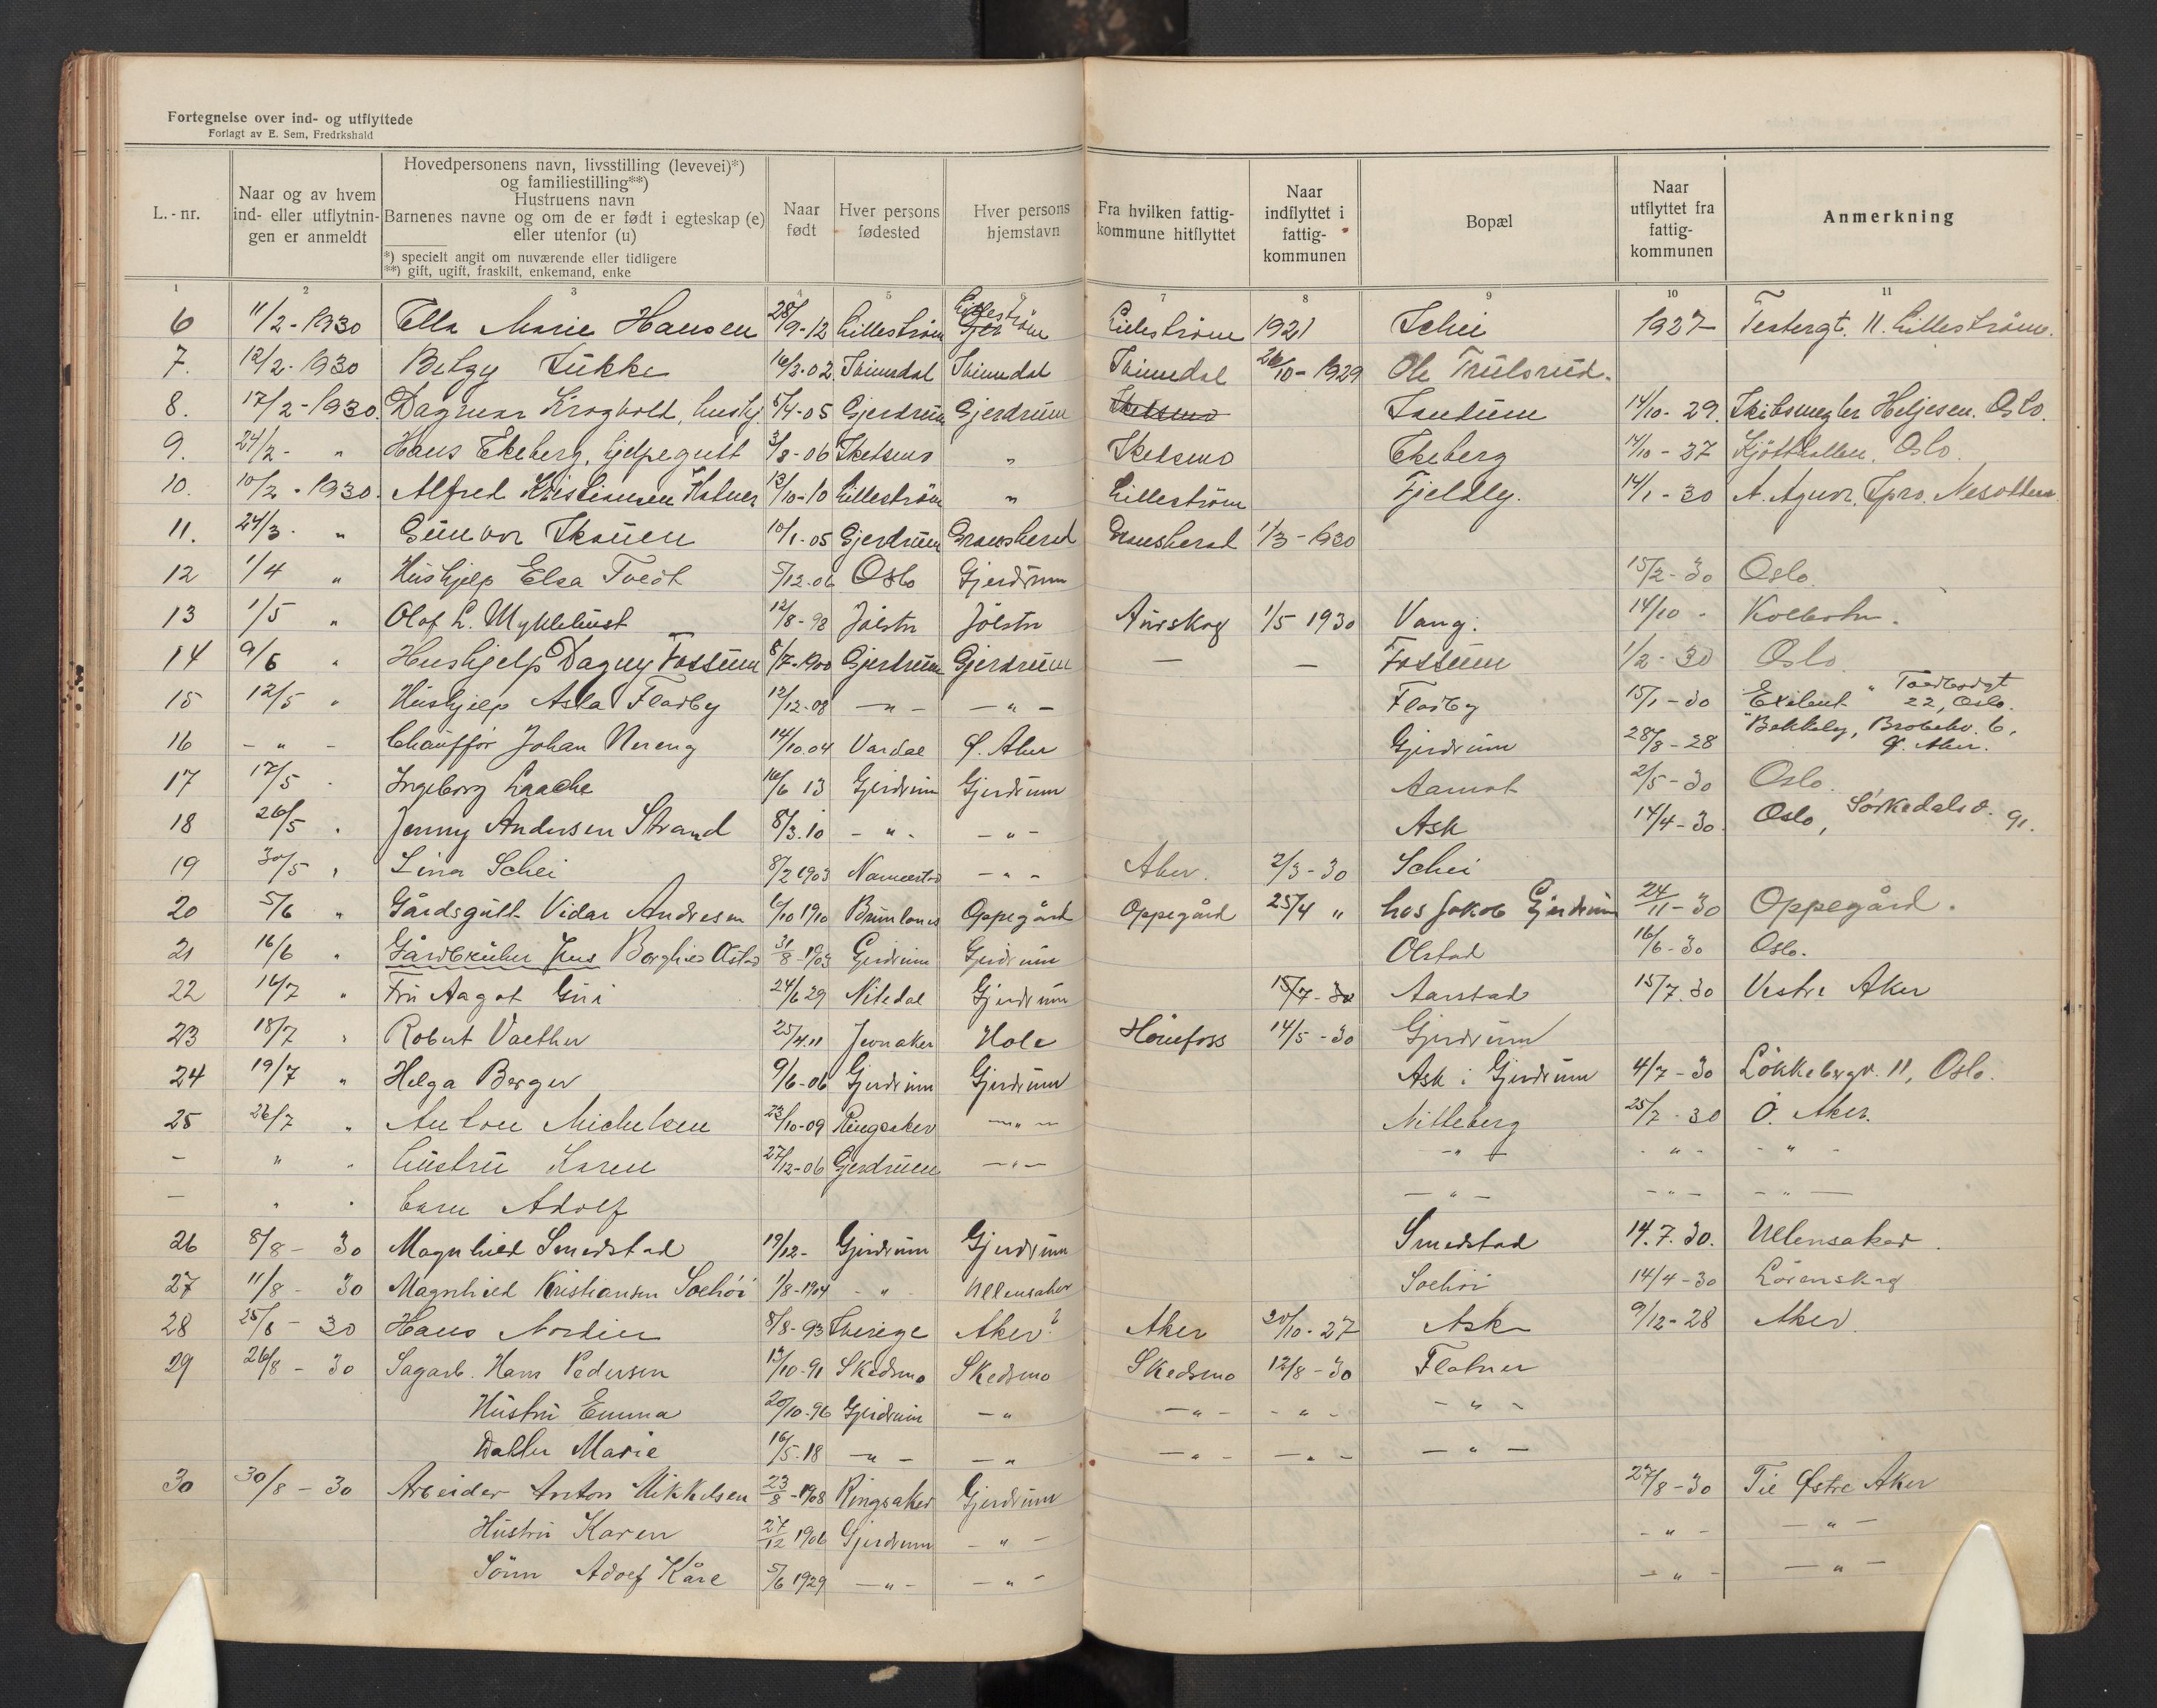 Fortegnelse over ind- og utflyttede
Forlagt av E. Sem, Fredrkshald
L.-nr.
Naar og av hvem ind- eller utflytnin- gen er anmeldt
Hovedpersonens navn, livsstilling (levevei)*)
og familiestilling**)
Hustruens navn
Barnenes navne og om de er født i egteskap (e)
eller utenfor (u)
*) specielt angit om nuværende eller tidligere
**) gift, ugift, fraskilt, enkemand, enke
Naar født
Hver persons fødested
Hver persons hjemstavn
Fra hvilken fattig- kommune hitflyttet
Naar indflyttet i fattig- kommunen
Bopæl
Naar utflyttet fra fattig- kommunen
Anmerkning
1 2 3 4 5 6 7 8 9 10 11
6 11/2-1930 Ella Marie Hansen 28/9-12 Lilleström Lilleström Lilleström 1921 Schei 1927- 11. Lilleström.
7. 12/2-1930 16/2-02 26/10-1929 Ole Trulsrud.
8. 17/2-1930. Dagmar Krogholt, hushj. 5/4-05 Gjerdrum Gjerdrum Sketsmo 14/10-29. Skibsmegler Heljesen. Oslo.
9. 24/2- " Hans Ekeberg, hjelpegutt 3/8-06 Sketsmo " Sketsmo Ekeberg 14/10-27 Kjötthallen. Oslo.
10. 10/2-1930. Alfred Kristiansen 13/10-10 Lilleström " Lilleström Fjeldly. 14/1-30 A.
11. 24/3- " Gunvor Skouen 10/1-05 Gjerdrum Gransherad Gransherad 1/3-1930
12 1/4 " Hushjelp Elsa Tvedt 5/12-06 Oslo Gjerdrum 15/2-30 Oslo.
13 1/5 " Olaf L. Myklebust 12/8-98 Jölster Jölster Aurskog 1/5 1930 Vang. 14/10 - Kolbotn.
14 9/5 " Hushjelp Dagny Fossum 8/7-1900 Gjerdrum Gjerdrum — — Fossum 1/2-30 Oslo
15 12/5 " Hushjelp Asla Flatby 12/12-08 — " — — " — Flatby 15/1-30 22, Oslo.
16 — " — Chauffør Johan Nereng 14/10.04 Vardal Ø. Aker Gjerdrum 28/8-28 Bekkely, 6, Ø. Aker.
17 17/5 " Ingeborg Laache 16/6 13 Gjerdrum Gjerdrum Aamot 2/5-30 Oslo.
18 26/5 " Jenny Andersen Strand 8/3.10 — " — — " — Ask 14/4-30. Oslo, Sørkedalsv. 91.
19 30/5 " Lina Schei 8/2 1903 Nannestad — " — Aker. 2/3-30 Schei
20 5/6 " Gårdsgutt Vidar Andresen 6/10 1910 Oppegård Oppegård 25/4 " hos Jakob Gjerdrum 24/11-30 Oppegård.
21 16/6 " Gårdbruker frue Borghild Olstad 31/8-1903 Gjerdrum Gjerdrum Olstad 16/6-30 Oslo.
22 16/7 " Fru Aagot Guri 24/6 29 Nitedal Gjerdrum 15/7-30 Aarstad 15/7.30 Vestre Aker
23 18/7 " Robert Vaether 25/4.11 Jevnaker Hole Hönefoss 14/5-30 Gjerdrum
24 19/7 " Helga Berger 9/6-06 Gjerdrum Gjerdrum Ask i Gjerdrum 4/7-30 Lökkebergv. 11, Oslo.
25 26/7 " Anton Michelsen 23/10-09 Ringsaker — " — Nitteberg 25/7-30 Ö. Aker.
— " " hustru Karen 27/12-06 Gjerdrum — " — — " — - " - - " -
— " " barn Adolf — " — — " — — " —
26 8/8 - 30 Magnhild Smedstad 19/12- Gjerdrum Gjerdrum Smedstad 14.7.30. Ullensaker.
27 11/8 - 30 Magnhild Kristiansen Solhöi 1/8-1904 - " - Ullensaker Solhöi 14/4-30 Lörenskog
28 25/8 - 30 Hans Nordier 8/8-93 Sverige Aker? Aker 20/10-27 Ask 9/12-28 Aker.
29 26/8 - 30 Sagarb. Hans Pedersen 13/10-91 Skedsmo Skedsmo Skedsmo 12/8-30 Flatner
Hustru Emma 20/10-96 Gjerdrum — " — " — - " - — " —
Datter Marie 16/5.18 — " — — " — " — — " — — " —
30 30/8 - 30 Arbeider Anton Mikkelsen 23/8-1908 Ringsaker Gjerdrum 27/8-30 Til Østre Aker
Hustru Karen 27/12 1906 Gjerdrum — " — - " - — " —
Sönn Adolf Kåre 5/6 1929 — " — — " — - " - — " —